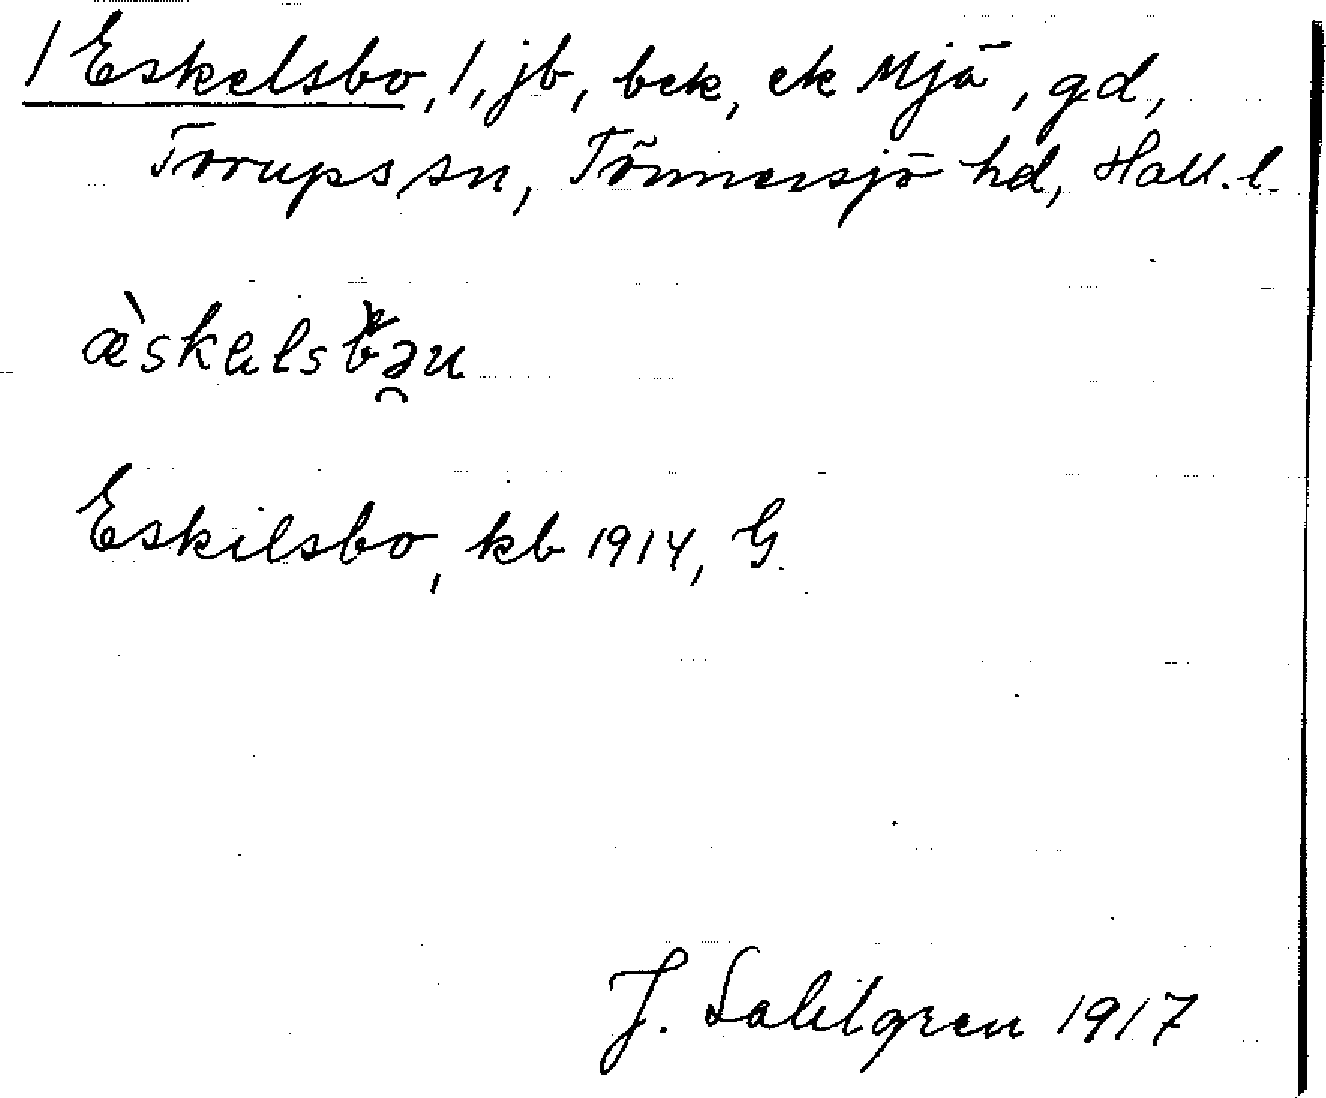 / Eskelsbo, /, jb, bek, ek Mjä, gd,
Torups sn, Tönnersjö hd, Hall. l.
æ̀skəlsbə̯u
Eskilsbo, kb 1914, G.
J. Sahlgren 1917